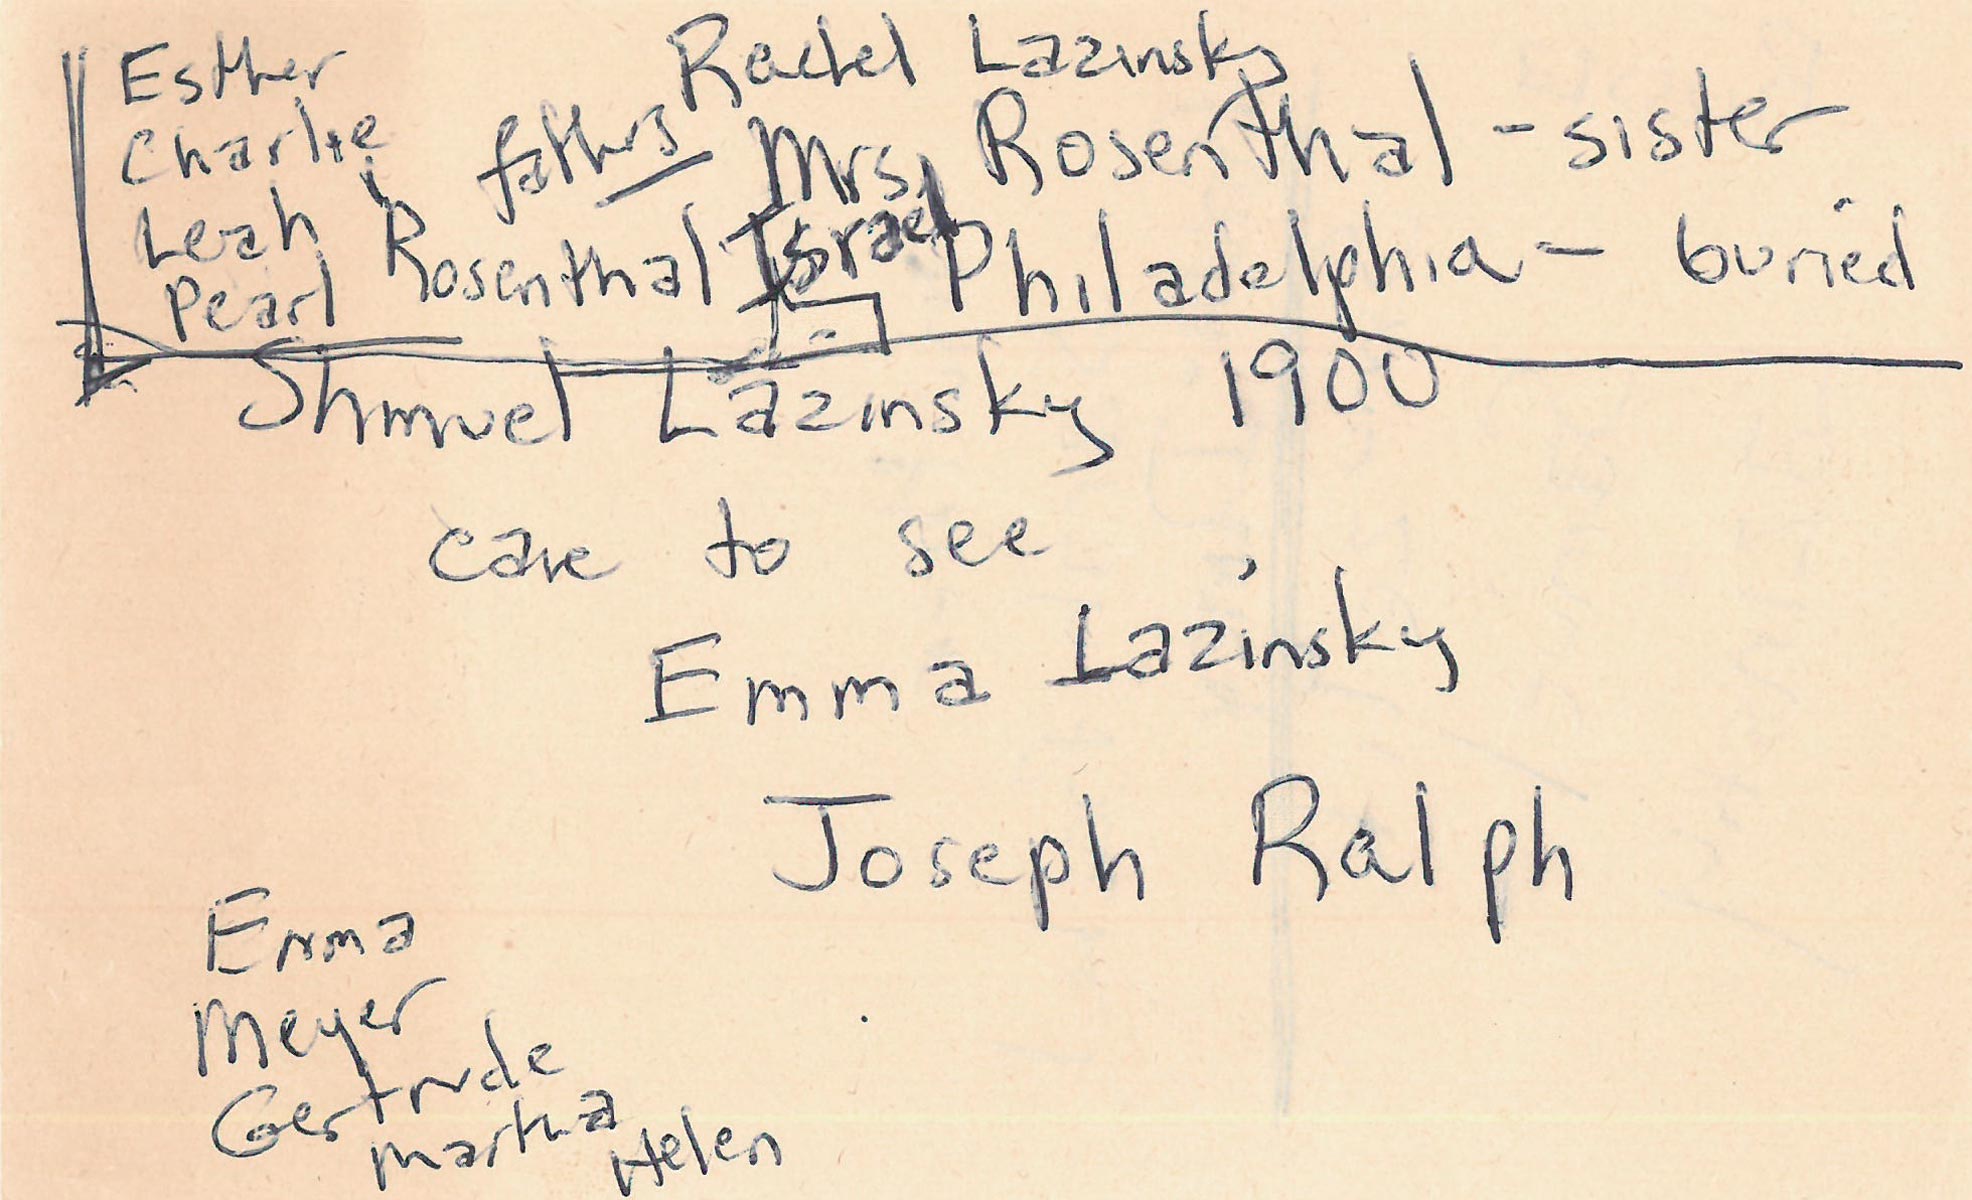 Esther
Charlie
Leah
Pearl
Rachel Lazinsky
fathers Mrs. Rosenthal - sister
Rosenthal Israel Philadelphia - buried
Shmuel Lazinsky 1900
care to see
Emma Lazinsky
Joseph Ralph
Emma
Meyer
Gertrude
Martha
Helen